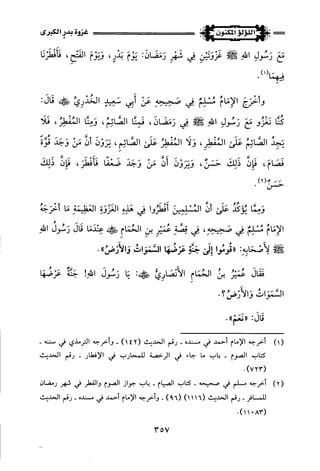 اللؤلؤ المكنون
غزوة بدر الكبرى
مَعَ رَسُولِ اللهِ ﷺ غَزْوَتَيْنِ فِي شَهْرِ رَمَضَانَ: يَوْمَ بَدْرٍ، وَيَوْمَ الفَتْحِ، فَأَفْطَرْنَا
فِيهِمَا(١).
وأَخْرَجَ الإِمَامُ مُسْلِمٌ فِي صَحِيحِهِ عَنْ أَبِي سَعِيدٍ الخُدْرِيِّ ﷺ قَالَ:
كُنَّا نَغْزُو مَعَ رَسُولِ اللهِ ﷺ فِي رَمَضَانَ، فَمِنَّا الصَّائِمُ، وَمِنَّا المُفْطِرُ، فَلَا
يَجِدُ الصَّائِمُ عَلَى المُفْطِرِ، وَلَا المُفْطِرُ عَلَى الصَّائِمِ، يَرَوْنَ أَنَّ مَنْ وَجَدَ قُوَّةً
فَصَامَ، فَإِنَّ ذَلِكَ حَسَنٌ، وَيَرَوْنَ أَنَّ مَنْ وَجَدَ ضَعْفًا فَأَفْطَرَ، فَإِنَّ ذَلِكَ
حَسَنٌ(٢).
وَمِمَّا يُؤَكِّدُ عَلَى أَنَّ المُسْلِمِينَ أَفْطَرُوا فِي هَذِهِ الغَزْوَةِ العَظِيمَةِ مَا أَخْرَجَهُ
الإِمَامُ مُسْلِمٌ فِي صَحِيحِهِ، فِي قِصَّةِ عُمَيْرِ بنِ الحُمَامِ ﷺ عِنْدَمَا قَالَ رَسُولُ اللهِ
ﷺ لِأَصْحَابِهِ: «قُومُوا إِلَى جَنَّةٍ عَرْضُهَا السَّمَوَاتُ وَالأَرْضُ».
فَقَالَ عُمَيْرُ بنُ الحُمَامِ الأَنْصَارِيُّ ﷺ: يَا رَسُولَ اللهِ! جَنَّةٌ عَرْضُهَا
السَّمَوَاتُ وَالأَرْضُ؟.
قَالَ: «نَعَمْ».
(١) أخرجه الإمام أحمد في مسنده - رقم الحديث (١٤٢) - وأخرجه الترمذي في سننه -
كتاب الصوم - باب ما جاء في الرخصة للمحارب في الإفطار - رقم الحديث
(٧٢٣).
(٢) أخرجه مسلم في صحيحه - كتاب الصيام - باب جواز الصوم والفطر في شهر رمضان
للمسافر - رقم الحديث (١١١٦) (٩٦) - وأخرجه الإمام أحمد في مسنده - رقم الحديث
(١١٠٨٣).
٣٥٧